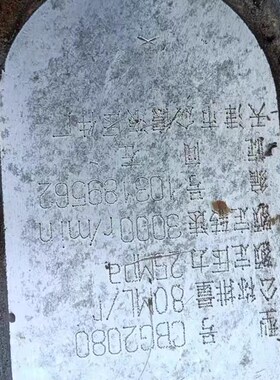 型号 CBG2080
公称排量 80ML/r
额定压力 25MPa
额定转速 3000r/min
编号 103189562
旋向
天津市